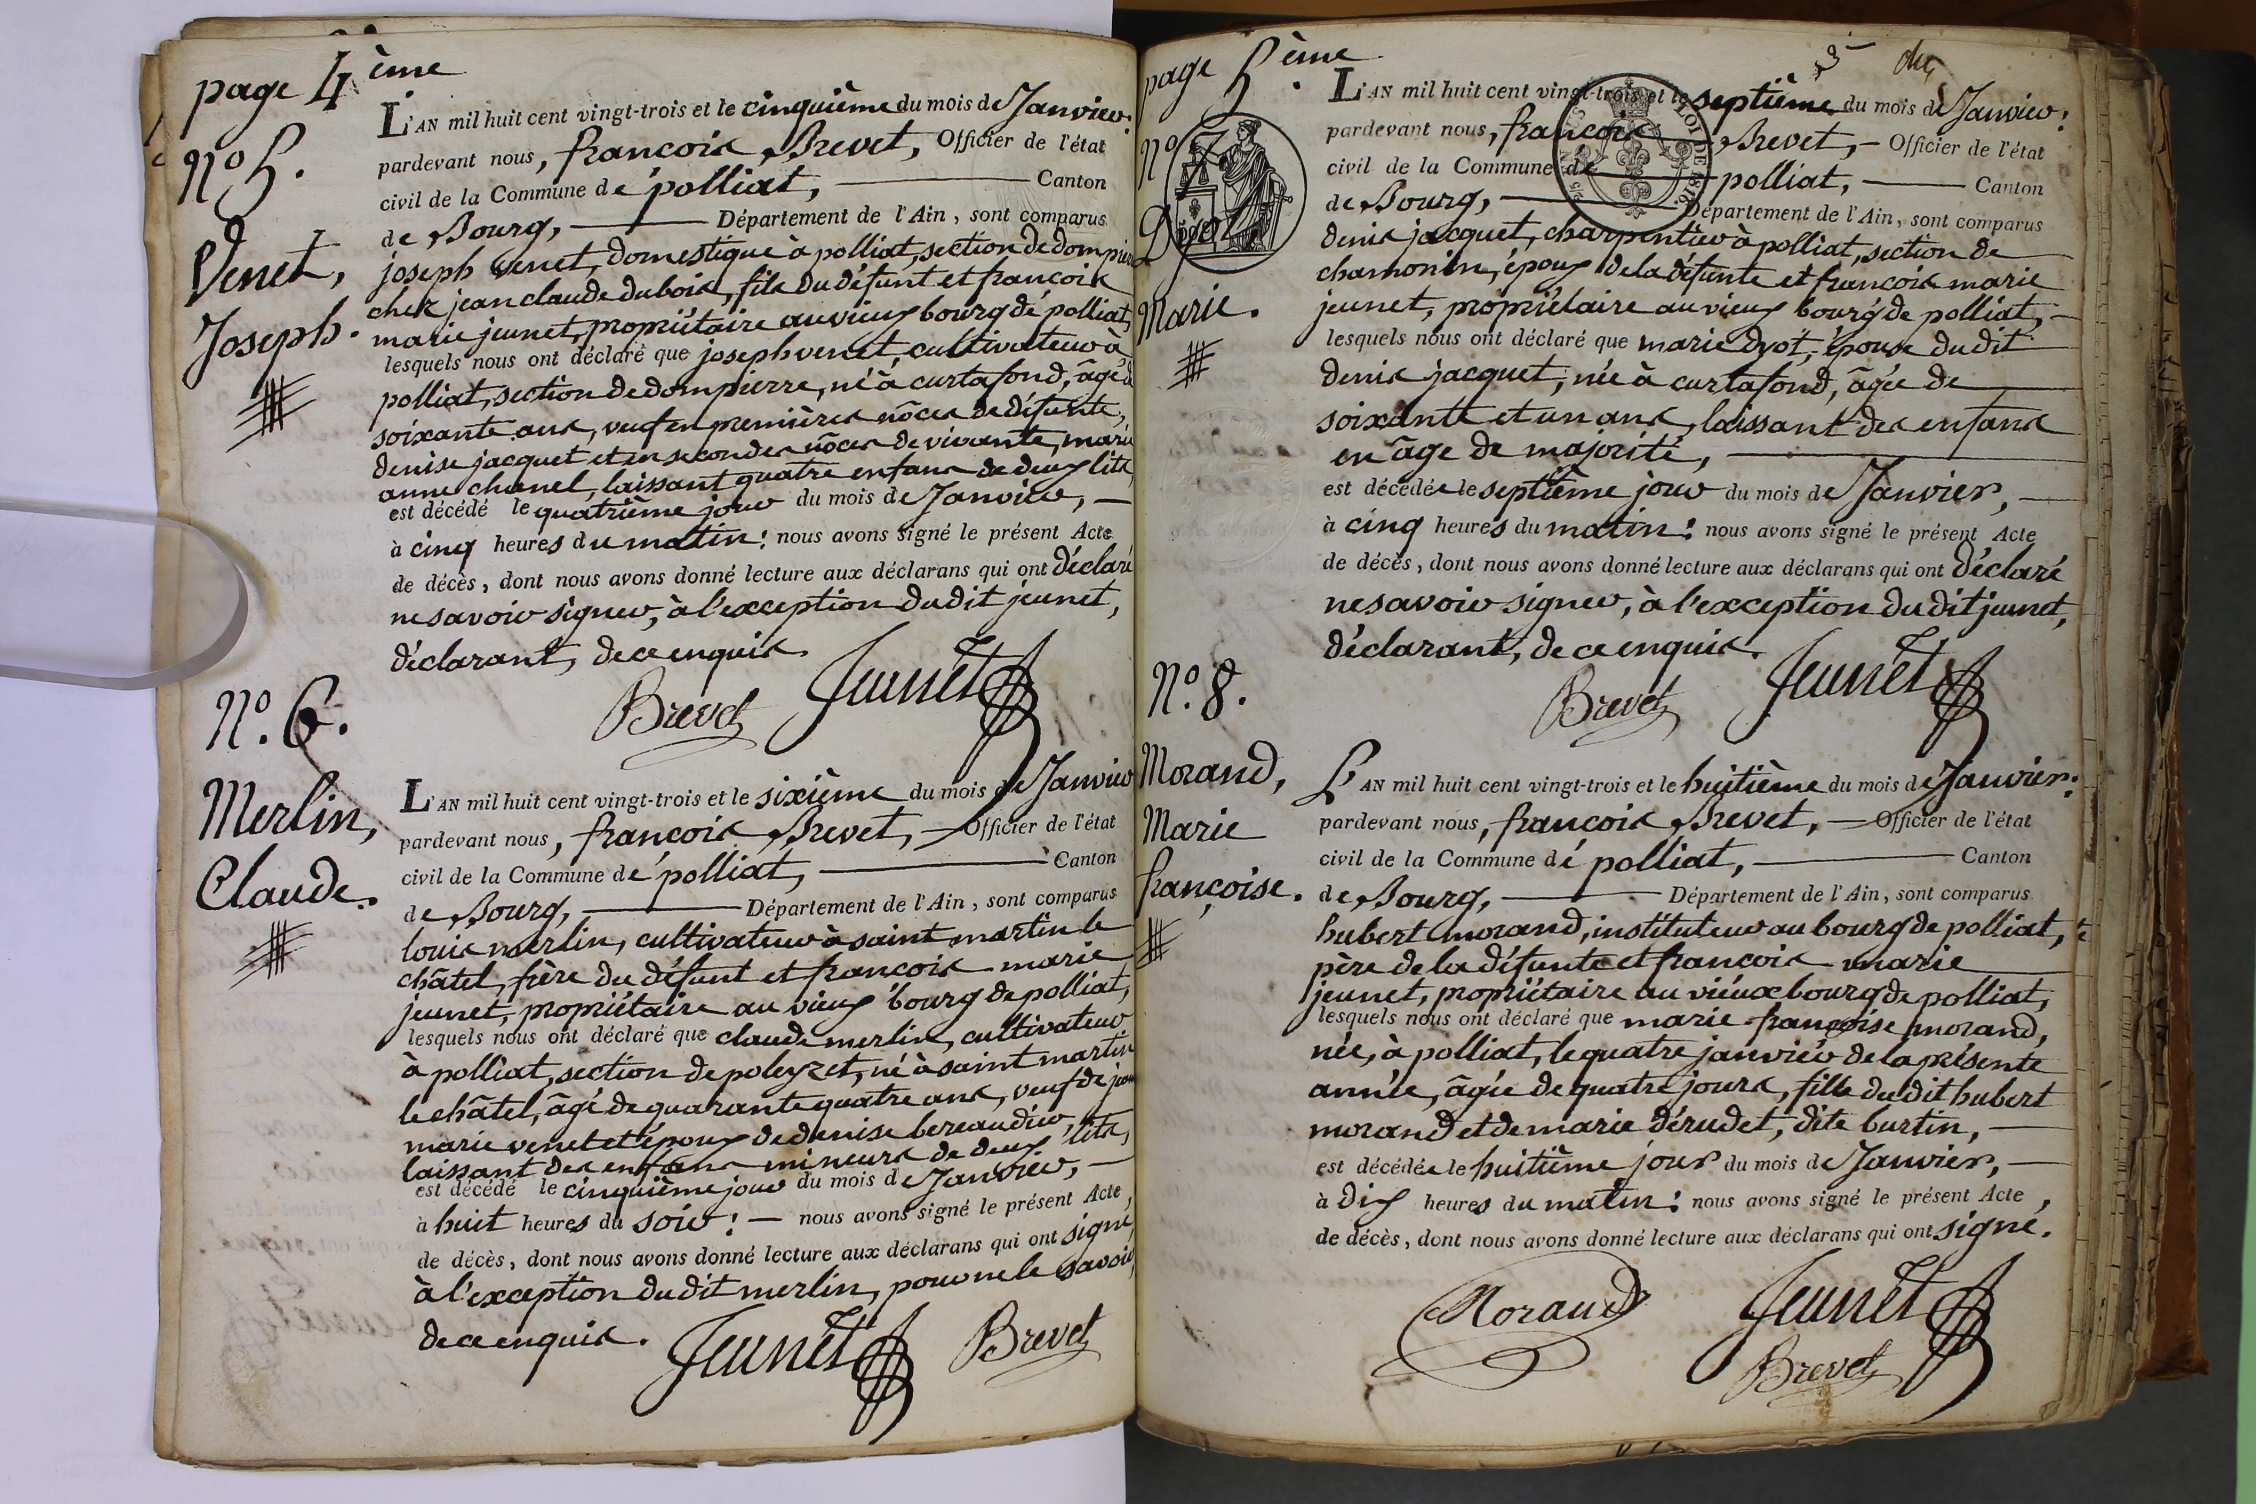 page 4ème
N° 5.
Venet,
Joseph.
L'AN mil huit cent vingt-trois et le cinquième du mois de Janvier:
pardevant nous, françois Brevet, Officier de l'état
civil de la Commune de polliat, Canton
de Bourg, Département de l'Ain, sont comparus
joseph venet, domestique à polliat, section de dompierre
chez jean claude dubois, fils du défunt et françois
marie jeunet, propriétaire au vieux bourg de polliat,
lesquels nous ont déclaré que joseph venet, cultivateur à
polliat, section de dompierre, né à curtafond, âgé de
soixante ans, veuf en premières nôces de défunte,
denise jacquet et en secondes nôces de vivante, marie
anne chanel, laissant quatre enfans de deux lits,
est décédé le quatrième jour du mois de Janvier,
à cinq heures du matin: nous avons signé le présent Acte
de décès, dont nous avons donné lecture aux déclarans qui ont déclaré
ne savoir signer, à l'exception du dit jeunet,
déclarant, de ce enquis.
Brevet Jeunet
N°. 6.
Merlin,
Claude.
L'AN mil huit cent vingt-trois et le sixième du mois de Janvier
pardevant nous, françois Brevet, Officier de l'état
civil de la Commune de polliat, Canton
de Bourg, Département de l'Ain, sont comparus
louis merlin, cultivateur à saint martin le
châtel, frère du défunt et françois marie
jeunet, propriétaire au vieux bourg de polliat,
lesquels nous ont déclaré que claude merlin, cultivateur
à polliat, section de poleyzet, né à saint martin
le châtel, âgé de quarante quatre ans, veuf de
marie venet et époux de denise bereaudier,
laissant des enfans mineurs de deux lits,
est décédé le cinquième jour du mois de Janvier,
à huit heures du soir: nous avons signé le présent Acte,
de décès, dont nous avons donné lecture aux déclarans qui ont signé,
à l'exception du dit merlin, pour ne le savoir,
de ce enquis.
Jeunet Brevet
page 5.ème
N° 7
Dyot
Marie.
L'AN mil huit cent vingt-trois et le septième du mois de Janvier:
pardevant nous, françois Brevet, Officier de l'état
civil de la Commune de polliat, Canton
de Bourg, Département de l'Ain, sont comparus
LOI DE 1816.
denis jacquet, charpentier à polliat, section de
chamonin, époux de la défunte et françois marie
jeunet, propriétaire au vieux bourg de polliat,
lesquels nous ont déclaré que marie dyot, épouse du dit
denis jacquet, née à curtafond, âgée de
soixante et un ans, laissant des enfans
en âge de majorité,
est décédée le septième jour du mois de Janvier,
à cinq heures du matin: nous avons signé le présent Acte
de décès, dont nous avons donné lecture aux déclarans qui ont déclaré
ne savoir signer, à l'exception du dit jeunet,
déclarant, de ce enquis.
Brevet Jeunet
N°. 8.
Morand,
Marie
françoise.
L'AN mil huit cent vingt-trois et le huitième du mois de Janvier:
pardevant nous, françois Brevet, Officier de l'état
civil de la Commune de polliat, Canton
de Bourg, Département de l'Ain, sont comparus
hubert morand, instituteur au bourg de polliat,
père de la défunte et françois marie
jeunet, propriétaire au vieux bourg de polliat,
lesquels nous ont déclaré que marie françoise morand,
née, à polliat, le quatre janvier de la présente
année, âgée de quatre jours, fille du dit hubert
morand et de marie dérudet, dite burtin,
est décédée le huitième jour du mois de Janvier,
à dix heures du matin: nous avons signé le présent Acte,
de décès, dont nous avons donné lecture aux déclarans qui ont signé.
Morand Jeunet
Brevet